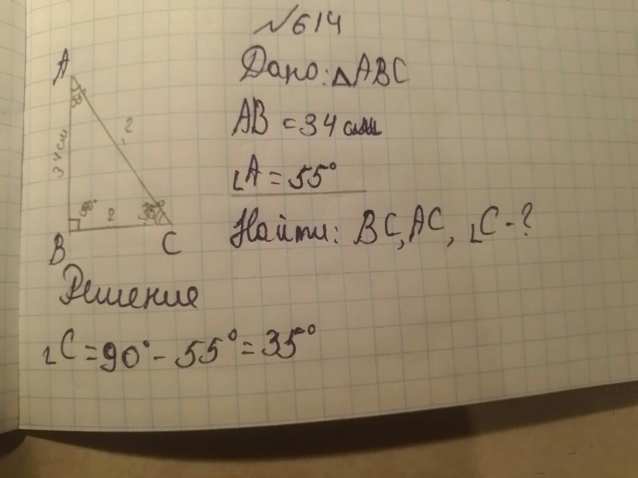 №614
Дано: △ABC
AB = 34 см
∠A = 55°
Найти: BC, AC, ∠C - ?
A
55°
34 см
?
90°
?
35°
B
C
Решение
∠C = 90° - 55° = 35°